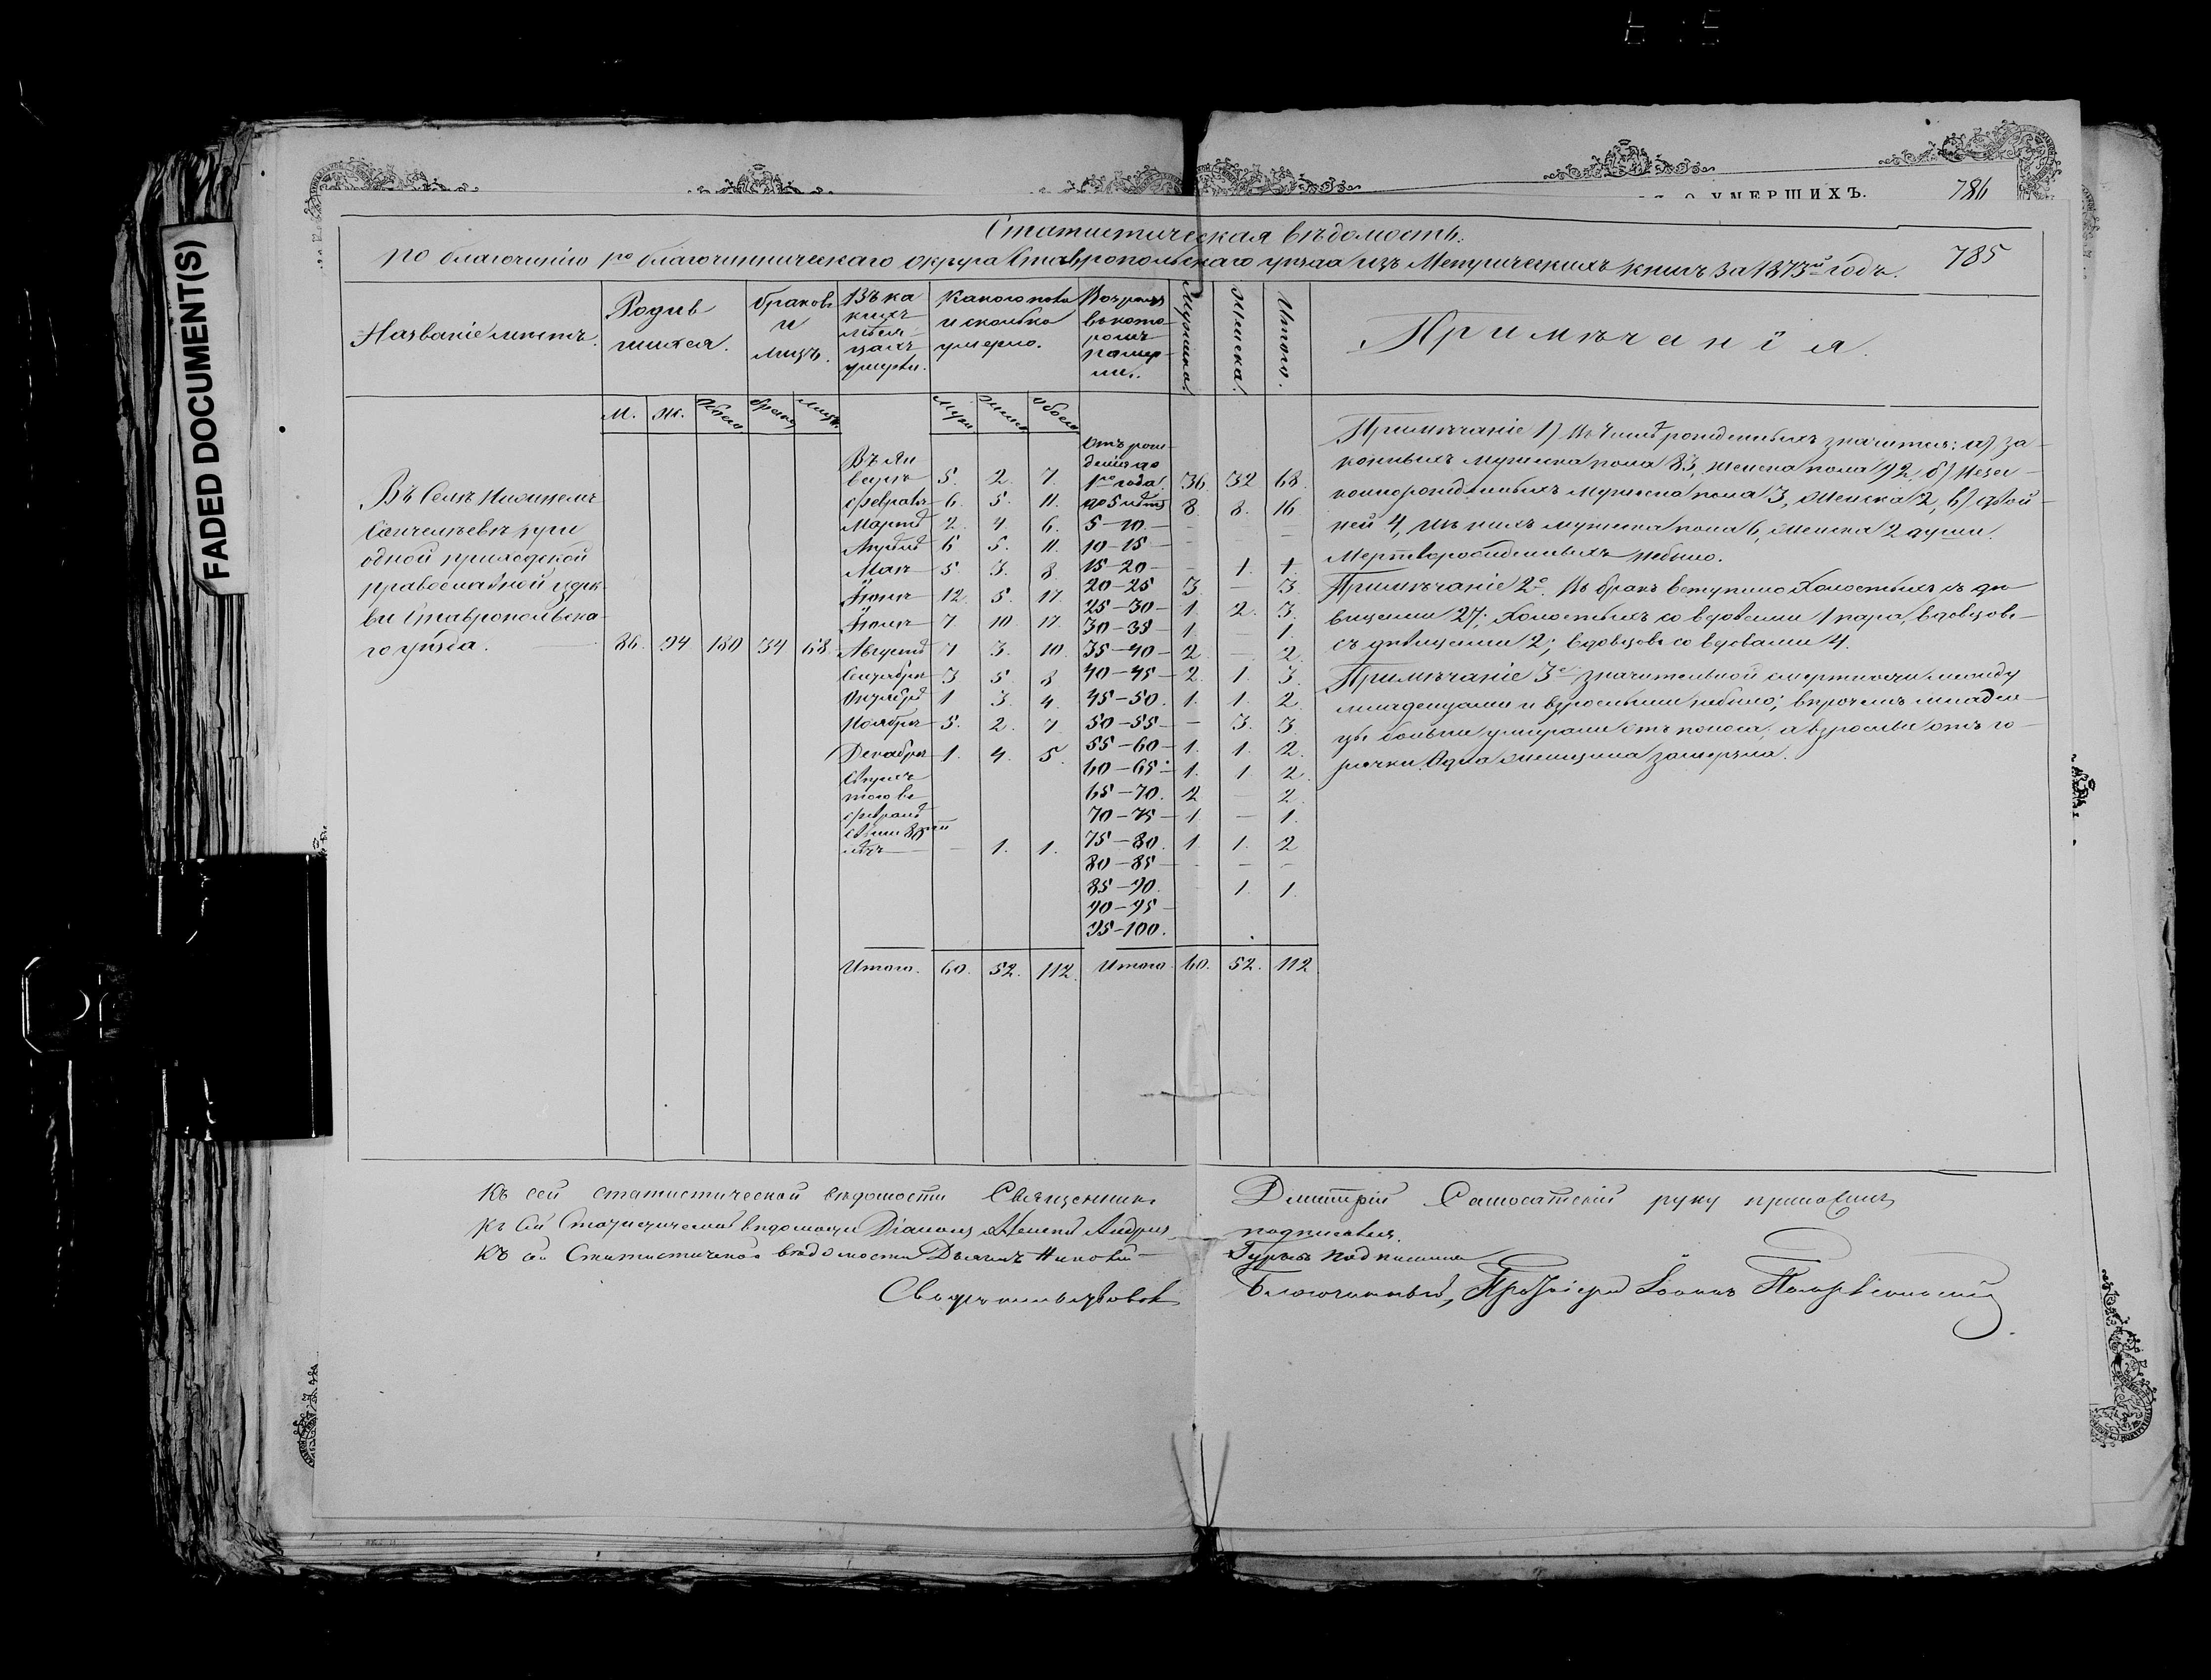 FADED DOCUMENT(S)
О УМЕРШИХЪ.
786
785
Статистическая вѣдомость.
по благочинію 1го благочинническаго округа Ставропольскаго уѣзда изъ Метрическихъ книгъ за 1873й годъ.
Названіе мѣстъ.
Родив
шихся.
браковъ
и
лицъ.
Въ ка
кихъ
мѣся-
цахъ
умерли.
Какого пола
и сколько
умерло.
Возрастъ
въ кото-
ромъ
помер-
ли.
Мужеска.
Женска.
Итого.
Примѣчанія.
М. Ж. Обоего. браковъ лицъ.
Муж. Женск. Обоего.
Въ Селѣ Нижнемъ
Санчелѣевѣ при
одной приходской
православной церк-
ви Ставропольска-
го уѣзда. 86. 94. 180 34 68.
Въ Ян
варѣ 5. 2. 7.
Февралѣ 6. 5. 11.
Мартѣ 2. 4. 6.
Апрѣлѣ 6 5. 11.
Маѣ 5. 3. 8.
Іюнѣ 12. 5. 17.
Іюлѣ 7. 10 17.
Августѣ 7 3. 10.
Сентябрѣ 3 5. 8
Октябрѣ 1 3. 4.
Ноябрѣ 5. 2. 7
Декабрѣ 1. 4. 5.
Сверхъ
того въ
Февралѣ
свыше 80ти
лѣтъ — 1. 1.
Итого. 60. 52. 112.
Отъ рож-
денія до
1го года. 36. 32 68.
до 5 лѣтъ 8. 8. 16
5-10. - - -
10-15 - - -
15-20 - 1. 1.
20-25 3. — 3.
25-30 1. 2. 3.
30-35 1. - 1.
35-40 2. — 2.
40-45 2. 1. 3.
45-50. 1. 1. 2.
50-55 — 3. 3.
55-60 1. 1. 2.
60-65 1. 1 2.
65-70. 2 — 2.
70-75 1 — 1.
75-80. 1. 1. 2
80-85 - - -
85-90. - 1. 1.
90-95
95-100.
Итого. 60. 52. 112
Примѣчаніе 1) Въ числѣ рожденныхъ значится: а) за-
конныхъ мужеска пола 83, женска пола 92, б) Неза-
коннорожденныхъ мужеска пола 3, женска 2, в) двой-
ней 4, въ нихъ мужеска пола 6, женска 2 души.
Мертворожденныхъ небыло.
Примѣчаніе 2е. Въ бракъ вступило Холостыхъ съ дѣ-
вицами 27; Холостыхъ со вдовами 1 пара, вдовцовъ
съ дѣвицами 2; вдовцовъ со вдовами 4.
Примѣчаніе 3е значительной смертности между
младенцами и взрослыми небыло; впрочемъ младен-
цы больше умирали отъ поноса, а взрослые отъ го-
рячки. Одна женщина замерзла.
Къ сей статистической вѣдомости Священникъ Димитрій Самосатскій руку приложилъ
Къ сей Статистической вѣдомости Діаконъ Алексій Андреевъ подписался.
Къ сей Статистической вѣдомости Дьячекъ Николай Гурьевъ подписался
Свидѣтельствовалъ Благочинный, Протоіерей Іоаннъ